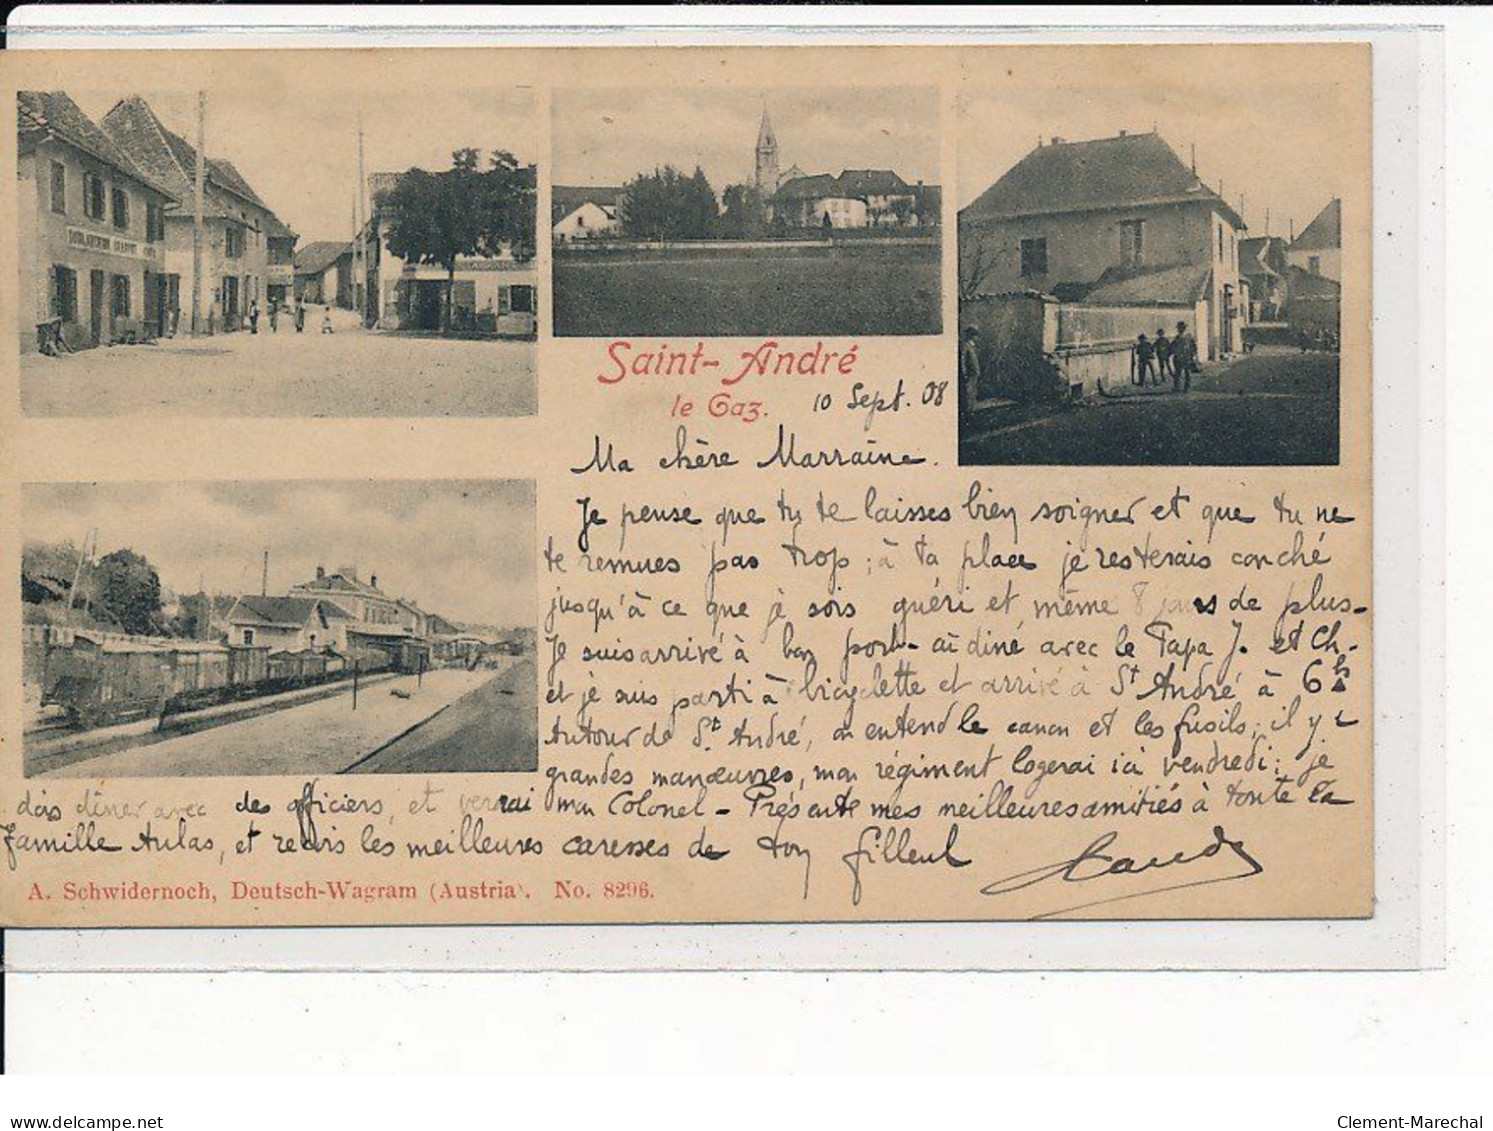 BOULANGERIE
Saint-André
le Gaz.
10 Sept. 08
Ma chère Marraine.
Je pense que tu te laisses bien soigner et que tu ne
te remues pas trop ; à ta place je resterais couché
jusqu'à ce que je sois guéri et même 8 jours de plus-
Je suis arrivé à bon port- ai diné avec le Papa J. et Ch.
et je suis parti à bicyclette et arrivé à St André à 6h
Autour de St. André, on entend le canon et les fusils; il y a
grandes manœuvres, mon régiment logerai ici vendredi; je
dois dîner avec des officiers, et verrai mon Colonel - Présente mes meilleures amitiés à toute la
famille Aulas, et reçois les meilleures caresses de ton filleul
A. Schwidernoch, Deutsch-Wagram (Austria). No. 8296.
Clement-Marechal
delcampe.net